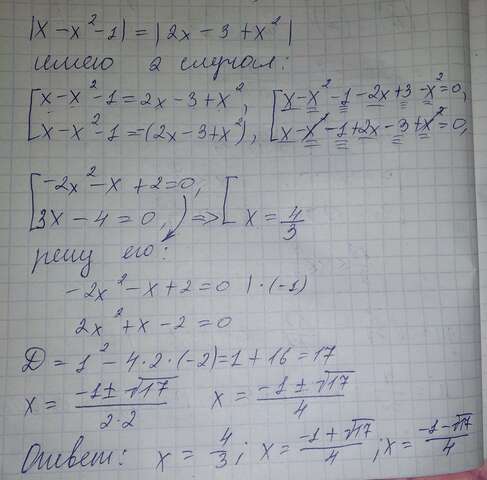 |x-x²-1| = |2x-3+x²|
имею 2 случая:
[x-x²-1=2x-3+x², [x-x²-1-2x+3-x²=0,
[x-x²-1=(2x-3+x²), [x-x²-1+2x-3+x²=0,
[-2x²-x+2=0, [
[3x-4=0, => [x=4/3
решу его:
-2x²-x+2=0 |·(-1)
2x²+x-2=0
D=1²-4·2·(-2)=1+16=17
x=(-1±√17)/(2·2) x=(-1±√17)/4
Ответ: x=4/3; x=(-1+√17)/4; x=(-1-√17)/4